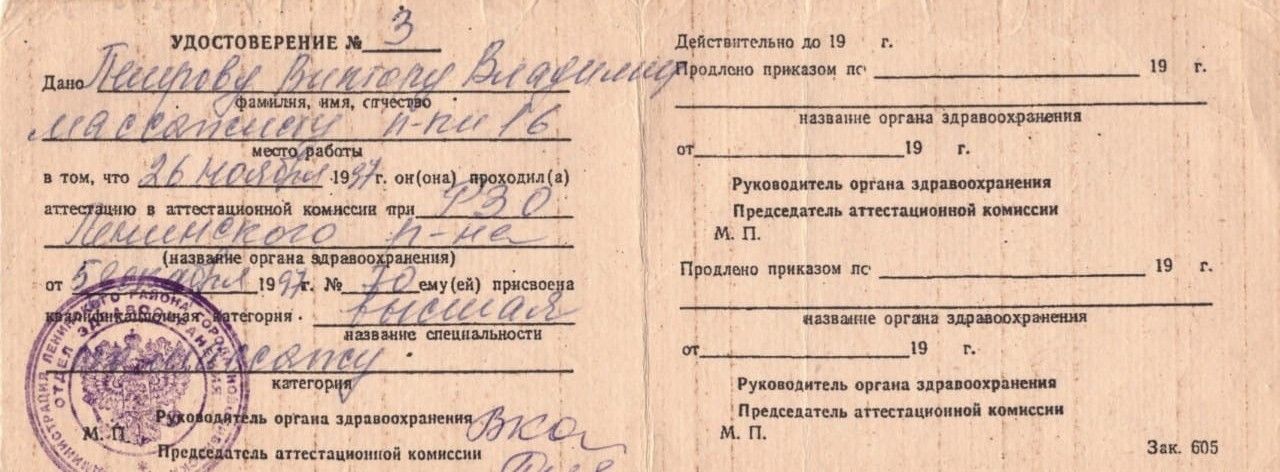 УДОСТОВЕРЕНИЕ № 3
Дано Петрову Виктору Владимир
фамилия, имя, отчество
массажисту п-ки 16
место работы
в том, что 26 ноября 1997г. он(она) проходил(а)
аттестацию в аттестационной комиссии при РЗО
Ленинского р-на
(название органа здравоохранения)
от 5 декабря 1997г. № 70 ему(ей) присвоена
квалификационная категория высшая
название специальности
по массажу
категория
Руководитель органа здравоохранения
М. П.
Председатель аттестационной комиссии
АДМИНИСТРАЦИЯ ЛЕНИНСКОГО РАЙОНА ГОРОДА
ОТДЕЛ ЗДРАВООХРАНЕНИЯ
Действительно до 19 г.
Продлено приказом по 19 г.
название органа здравоохранения
от 19 г.
Руководитель органа здравоохранения
Председатель аттестационной комиссии
М. П.
Продлено приказом по 19 г.
название органа здравоохранения
от 19 г.
Руководитель органа здравоохранения
Председатель аттестационной комиссии
М. П.
Зак. 605